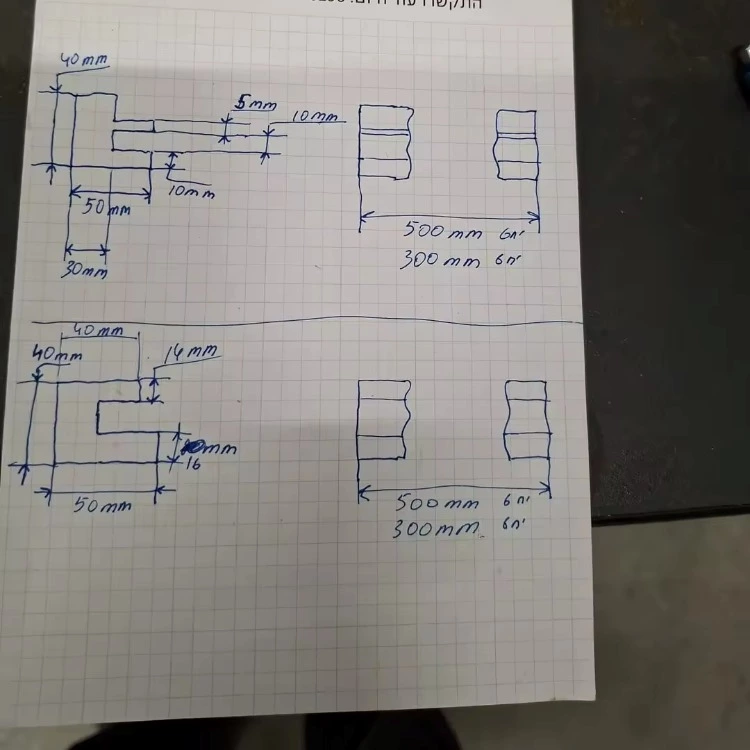 40mm
5mm
10mm
10mm
50mm
30mm
500mm 6יח'
300mm 6יח'
40mm
40mm
14mm
mm
16
50mm
500mm 6יח'
300mm. 6יח'